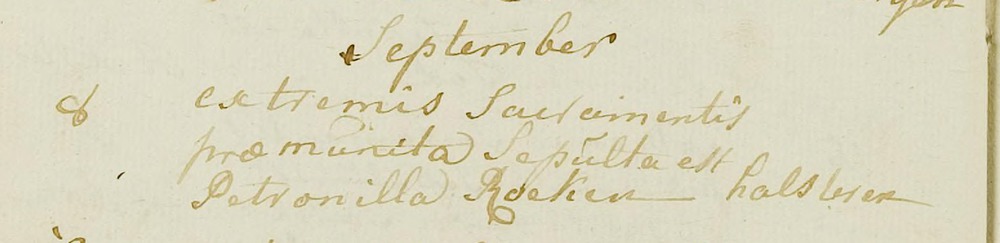 September
8 extremis Sacramentis
præmunita Sepulta est
Petronilla Roeken halsteren